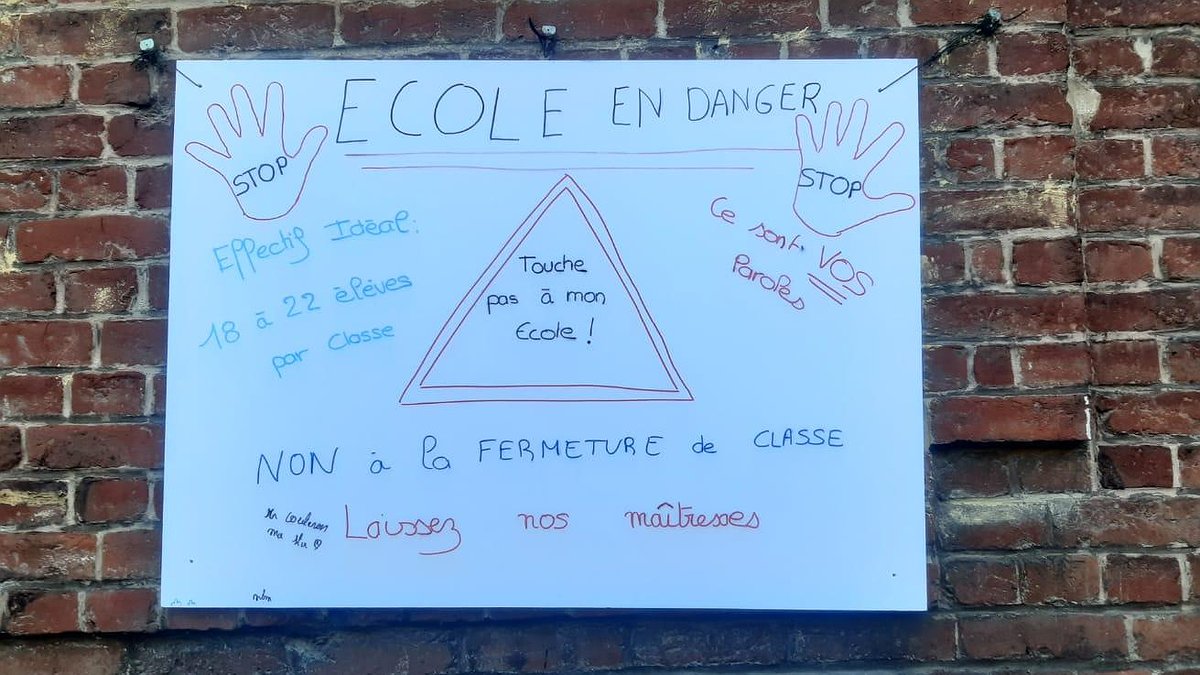 ECOLE EN DANGER
STOP
STOP
Effectif Idéal:
18 à 22 élèves
par Classe
Touche
pas à mon
Ecole !
Ce sont VOS
Paroles
NON à la FERMETURE de CLASSE
Laissez nos maîtresses